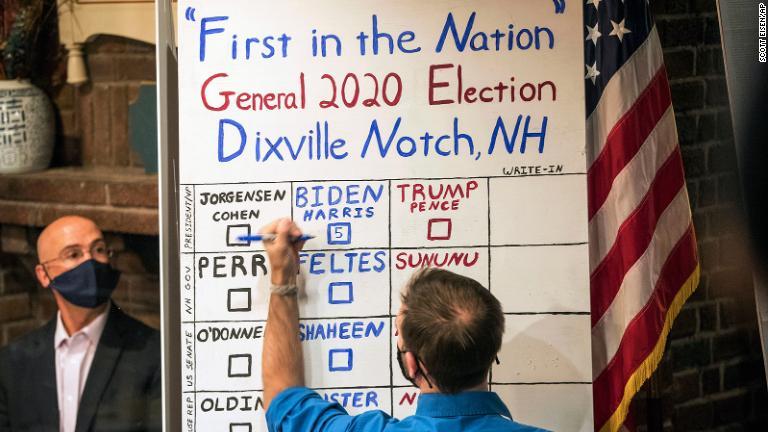 "First in the Nation"
General 2020 Election
Dixville Notch, NH
WRITE-IN
PRESIDENT/VP
JORGENSEN
COHEN
BIDEN
HARRIS
5
TRUMP
PENCE
NH GOV.
PERR
FELTES
SUNUNU
US SENATE
O'DONNE
SHAHEEN
SE REP
OLDIN
STER
SCOTT EISEN/AP